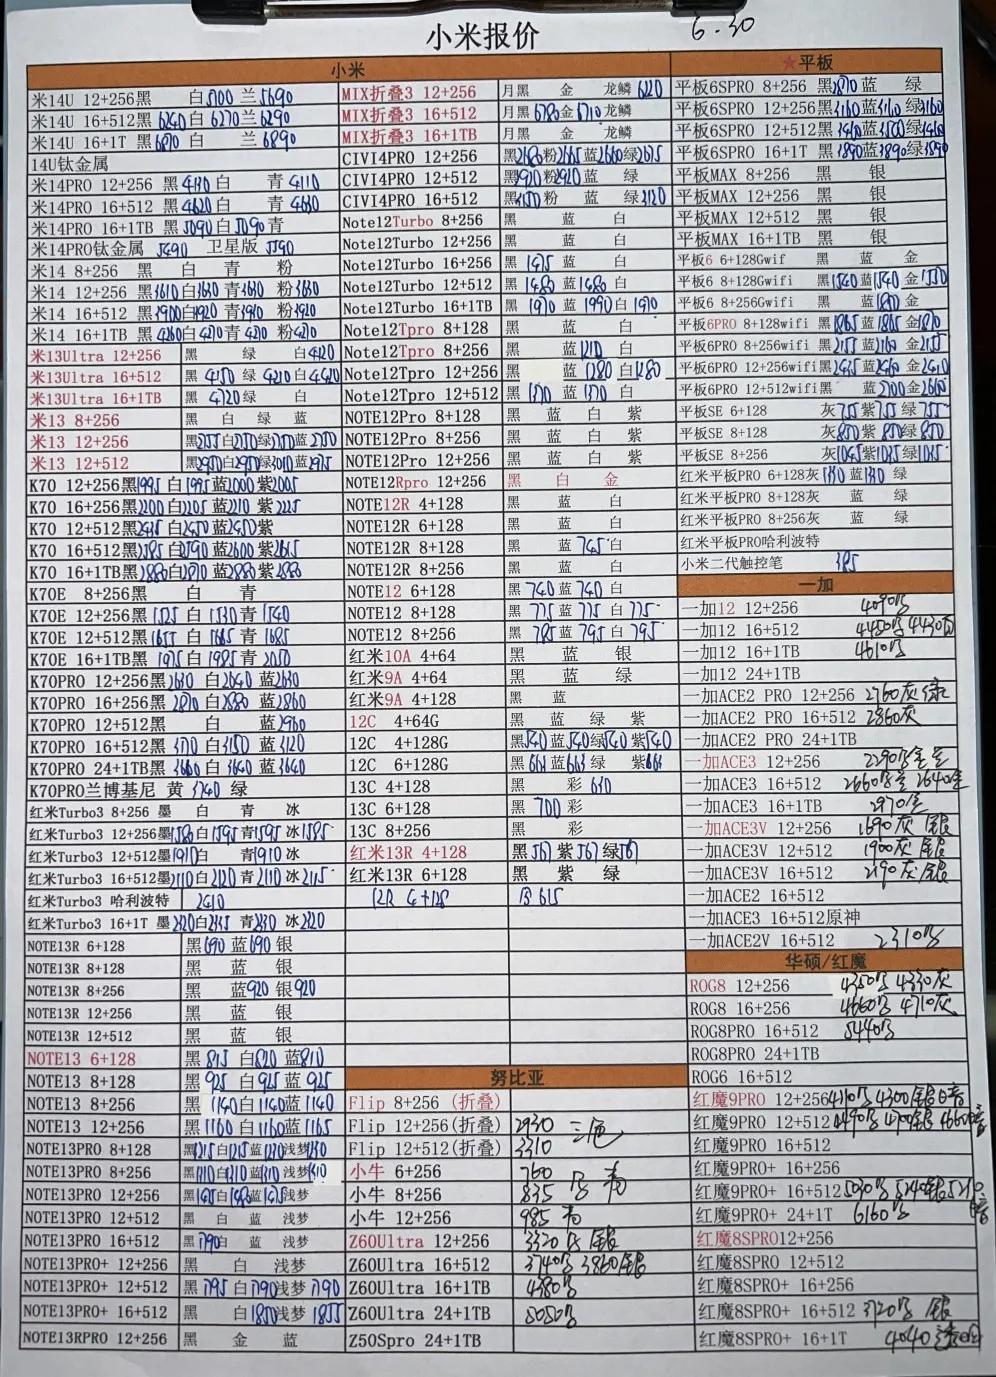 小米报价
6.30
小米
米14U 12+256黑 白5700 兰5690
米14U 16+512黑6240白6270兰6290
米14U 16+1T 黑6870白 兰6890
14U钛金属
米14PRO 12+256 黑4130白 青4110
米14PRO 16+512 黑4620白 青4630
米14PRO 16+1TB 黑5090白5090青
米14PRO钛金属 5490 卫星版 5590
米14 8+256 黑 白 青 粉
米14 12+256 黑3610白3630青3630 粉3630
米14 16+512 黑3900白3920青3910 粉3920
米14 16+1TB 黑4260白4270青4270 粉4270
米13Ultra 12+256 黑 绿 白4120
米13Ultra 16+512 黑 4150 绿 4210白4420
米13Ultra 16+1TB 黑 4720绿 白
米13 8+256 黑 白 绿 蓝
米13 12+256
米13 12+512
K70 12+256黑1995 白1995蓝2000紫2005
K70 16+256黑2200白2205蓝2210 紫2225
K70 12+512黑2445白2450蓝2450紫
K70 16+512黑2585白2590蓝2600紫2615
K70 16+1TB黑2880白2870蓝2880紫2880
K70E 8+256黑 白 青
K70E 12+256黑1525 白1530青1540
K70E 12+512黑1655 白1665青1685
K70E 16+1TB黑1975 白1985青2050
K70PRO 12+256黑2630 白2640蓝2630
K70PRO 16+256黑2870 白2880 蓝2860
K70PRO 12+512黑 白 蓝2960
K70PRO 16+512黑3170白3150蓝3120
K70PRO 24+1TB黑3660白3640蓝3640
K70PRO兰博基尼 黄 3740 绿
红米Turbo3 8+256 墨 白 青 冰
红米Turbo3 12+256墨1580白1595青1595冰1585
红米Turbo3 12+512墨1910白 青1910冰
红米Turbo3 16+512墨2110白2120青2110冰2115
红米Turbo3 哈利波特 2410
红米Turbo3 16+1T 墨2320白2345青2330冰2320
NOTE13R 6+128 黑690蓝690银
NOTE13R 8+128 黑 蓝 银
NOTE13R 8+256 黑 蓝920银920
NOTE13R 12+256 黑 蓝 银
NOTE13R 12+512 黑 蓝 银
NOTE13 6+128 黑 815 白820 蓝810
NOTE13 8+128 黑 925 白925蓝 925
NOTE13 8+256 黑 1140白1140蓝1140
NOTE13 12+256 黑 1160 白1160蓝1165
NOTE13PRO 8+128 黑1215白1215蓝1210浅梦1210
NOTE13PRO 8+256 黑1310白1310蓝1310 浅梦1310
NOTE13PRO 12+256 黑1475白1480蓝1475浅梦
NOTE13PRO 12+512 黑 白 蓝 浅梦
NOTE13PRO 16+512 黑1790白 蓝 浅梦
NOTE13PRO+ 12+256 黑 白 浅梦
NOTE13PRO+ 12+512 黑 1795 白1790浅梦1790
NOTE13PRO+ 16+512 黑 白1850浅梦1855
NOTE13RPRO 12+256 黑 金 蓝
MIX折叠3 12+256 月黑 金 龙鳞 6220
MIX折叠3 16+512 月黑 6780金6710龙鳞
MIX折叠3 16+1TB 月黑 金 龙鳞
CIVI4PRO 12+256 黑2680粉2665蓝2660绿2615
CIVI4PRO 12+512 黑2920粉2920蓝 绿
CIVI4PRO 16+512 黑3150粉 蓝 绿3120
Note12Turbo 8+256 黑 蓝 白
Note12Turbo 12+256 黑 蓝 白
Note12Turbo 16+256 黑 1415 蓝 白
Note12Turbo 12+512 黑 1480 蓝1480白
Note12Turbo 16+1TB 黑 1970 蓝1990白1970
Note12Tpro 8+128 黑 蓝 白
Note12Tpro 8+256 黑 蓝1210 白
Note12Tpro 12+256 黑 蓝 1280 白1280
Note12Tpro 12+512 黑 1370 蓝1370 白
NOTE12Pro 8+128 黑 蓝 白 紫
NOTE12Pro 8+256 黑 蓝 白 紫
NOTE12Pro 12+256 黑 蓝 白 紫
NOTE12Rpro 12+256 黑 白 金
NOTE12R 4+128 黑 蓝 白
NOTE12R 6+128 黑 蓝 白
NOTE12R 8+128 黑 蓝745白
NOTE12R 8+256 黑 蓝 白
NOTE12 6+128 黑 740 蓝 740 白
NOTE12 8+128 黑 775 蓝 775 白775
NOTE12 8+256 黑 785 蓝 795 白 795
红米10A 4+64 黑 蓝 银
红米9A 4+64 黑 蓝 绿
红米9A 4+128 黑 蓝
12C 4+64G 黑 蓝 绿 紫
12C 4+128G 黑540蓝540绿540 紫540
12C 6+128G 黑 661 蓝663 绿 紫661
13C 4+128 黑 彩 630
13C 6+128 黑 700 彩
13C 8+256 黑 彩
红米13R 4+128 黑567 紫567绿567
红米13R 6+128 黑 紫 绿
12R 6+128 白615
努比亚
Flip 8+256 (折叠)
Flip 12+256(折叠) 2930 三色
Flip 12+512(折叠) 3310
小牛 6+256 760
小牛 8+256 835
小牛 12+256 985 青
Z60Ultra 12+256 3320 银
Z60Ultra 16+512 3740 3860银
Z60Ultra 16+1TB 4380
Z60Ultra 24+1TB 5050
Z50Spro 24+1TB
★平板
平板6SPRO 8+256 黑2870蓝 绿
平板6SPRO 12+256黑3160蓝3160绿3160
平板6SPRO 12+512黑3460蓝3500绿3460
平板6SPRO 16+1T 黑3890蓝3890绿3890
平板MAX 8+256 黑 银
平板MAX 12+256 黑 银
平板MAX 12+512 黑 银
平板MAX 16+1TB 黑 银
平板6 6+128Gwif 黑 蓝 金
平板6 8+128Gwifi 黑1540蓝1540 金1550
平板6 8+256Gwifi 黑 蓝1800金
平板6PRO 8+128wifi 黑1865蓝1865 金1870
平板6PRO 8+256wifi 黑2155蓝2160 金2155
平板6PRO 12+256wifi黑2415蓝2460 金2410
平板6PRO 12+512wifi黑 蓝2700金2660
平板SE 6+128 灰755紫755绿755
平板SE 8+128 灰850紫850绿850
平板SE 8+256 灰1045紫1035绿1035
红米平板PRO 6+128灰1330蓝1330 绿
红米平板PRO 8+128灰 蓝 绿
红米平板PRO 8+256灰 蓝 绿
红米平板PRO哈利波特
小米二代触控笔 385
一加
一加12 12+256 4090
一加12 16+512 4450 4430
一加12 16+1TB 4610
一加12 24+1TB
一加ACE2 PRO 12+256 2760灰绿
一加ACE2 PRO 16+512 2860灰
一加ACE2 PRO 24+1TB
一加ACE3 12+256 2290
一加ACE3 16+512 2660 2640金
一加ACE3 16+1TB 2970金
一加ACE3V 12+256 1690灰 银
一加ACE3V 12+512 1900灰 银
一加ACE3V 16+512 2190灰 银
一加ACE2 16+512
一加ACE3 16+512原神
一加ACE2V 16+512 2310
华硕/红魔
ROG8 12+256 4350 4330灰
ROG8 16+256 4660 4710灰
ROG8PRO 16+512 5440
ROG8PRO 24+1TB
ROG6 16+512
红魔9PRO 12+256 4110 4300银
红魔9PRO 12+512 4490 4700银 4660
红魔9PRO 16+512
红魔9PRO+ 16+256
红魔9PRO+ 16+512 5030 5240银
红魔9PRO+ 24+1T 6160
红魔8SPRO12+256
红魔8SPRO 12+512
红魔8SPRO+ 16+256
红魔8SPRO+ 16+512 3720 银
红魔8SPRO+ 16+1T 4040